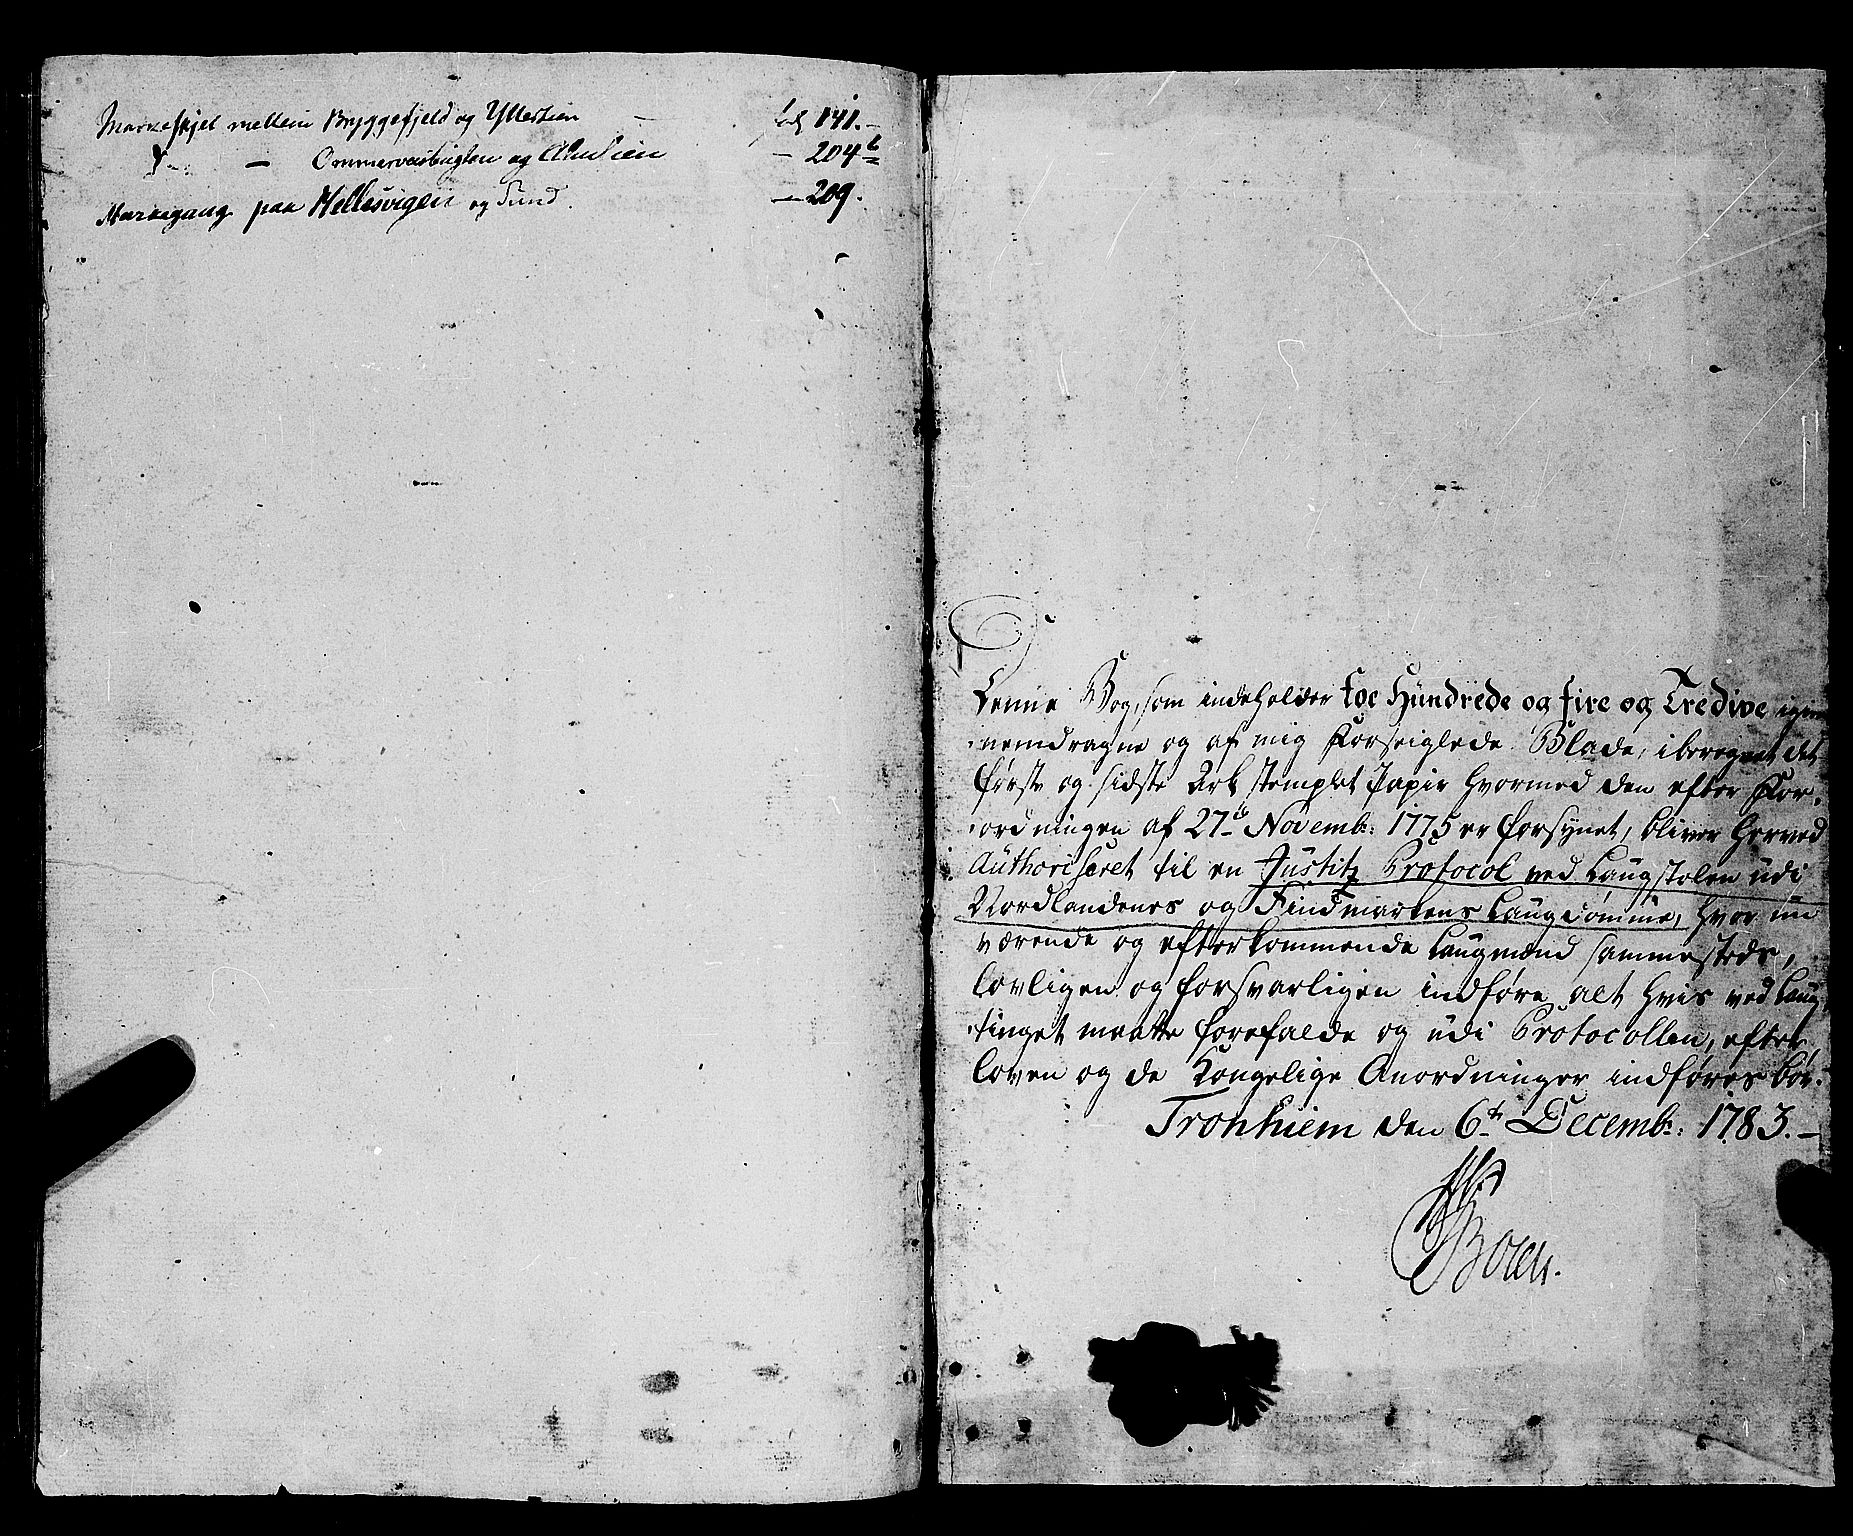 Markeskjel mellem Bryggefjeld og Yttersien — 141.
— Ommervasbugten og — 204 b
Markegang paa Hellesvigen og Sund. — 209.
Denne Bog, som indeholder toe Hündrede og fire og Tredive igien-
nemdragne og af mig Forseiglede Blade, iberegnet det
første og sidste Ark stemplet Papir hvormed den efter For-
ordningen af 27de Novembr: 1775 er forsynet, bliver herved
Authoriseret til en Justitz Protocol ved Laugstolen udi
Nordlandenes og Findmarkens Laugdømme, hvor nu
værende og efterkommende Laugmænd sammesteds,
lovligen og forsvarligen indføre alt hvis ved Laug-
tinget maatte forefalde og udi Protocollen, efter
Loven og de Kongelige Anordninger indføres bør.
Tronhiem den 6te Decembr: 1783. —